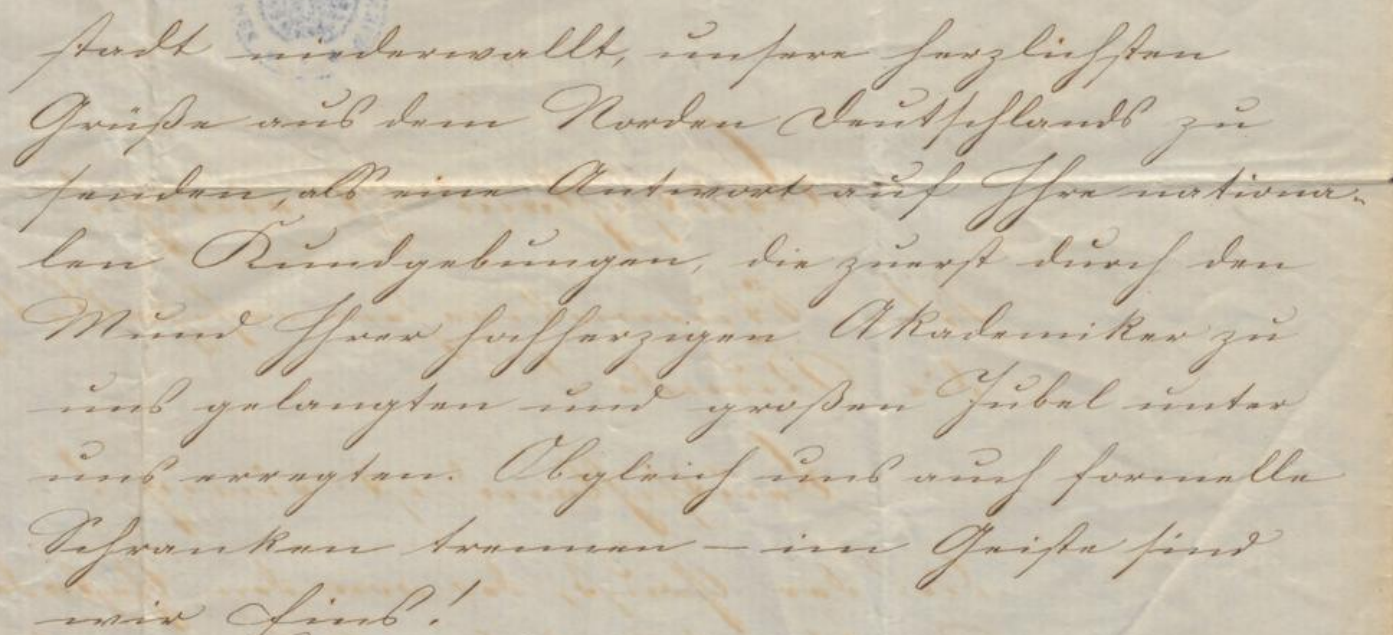 stadt niederwallt, unsere herzlichsten
Grüße aus dem Norden Deutschlands zu
senden, als eine Antwort auf Ihre nationa-
len Kundgebungen, die zuerst durch den
Mund Ihrer hochherzigen Akademiker zu
uns gelangten und großen Jubel unter
uns erregten. Obgleich uns auch formelle
Schranken trennen – im Geiste sind
wir Eins!